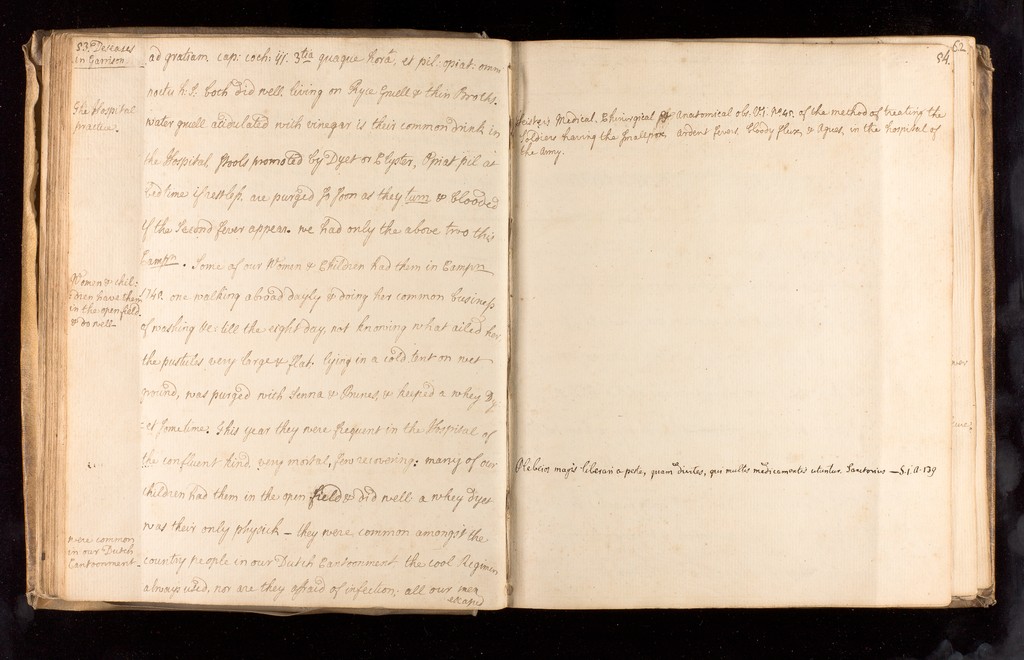 53. Diseases
in Garrison
ad gratiam, cap: coch: ij. 3tia quaque hora, et pil: opiat: omni
nocte h: S: both did well living on Ryce Gruell & thin Broths.
The Hospital
practice.
water gruell acidulated with vinegar is their common drink in
the Hospital, Stools promoted by Dyet or Clyster, Opiat pil at
bed time if restless. are purged so soon as they turn & blooded
if the Second fever appear. we had only the above two this
Campn. Some of our Women & Children had them in Campn
Women & chil-
dren have them
in the open field
& do well
1748. one walking abroad dayly & doing her common business
of washing &c till the eight day, not knowing what ailed her,
the pustules very large & flat, lying in a cold tent on wet
ground, was purged with Senna & Prunes, & keeped a whey Dy-
et sometime. This year they were frequent in the Hospital of
the confluent kind very mortal, few recovering: many of our
children had them in the open field & did well a whey dyet
was their only physick – they were common amongst the
were common
in our Dutch
Cantoonment
country people in our Dutch Cantoonment the cool Regimen
always used, nor are they afraid of infection; all our men
escaped
62
54.
Heister's Medical Chirurgical & Anatomical obs. No 40. of the method of treating the
Soldiers having the Smallpox, ardent fever, bloody flux, & Agues, in the hospital of
the Army.
Plebeios magis liberari a peste, quam Divites, qui multis medicamentis utuntur. Sanctorius — S.1.A.139